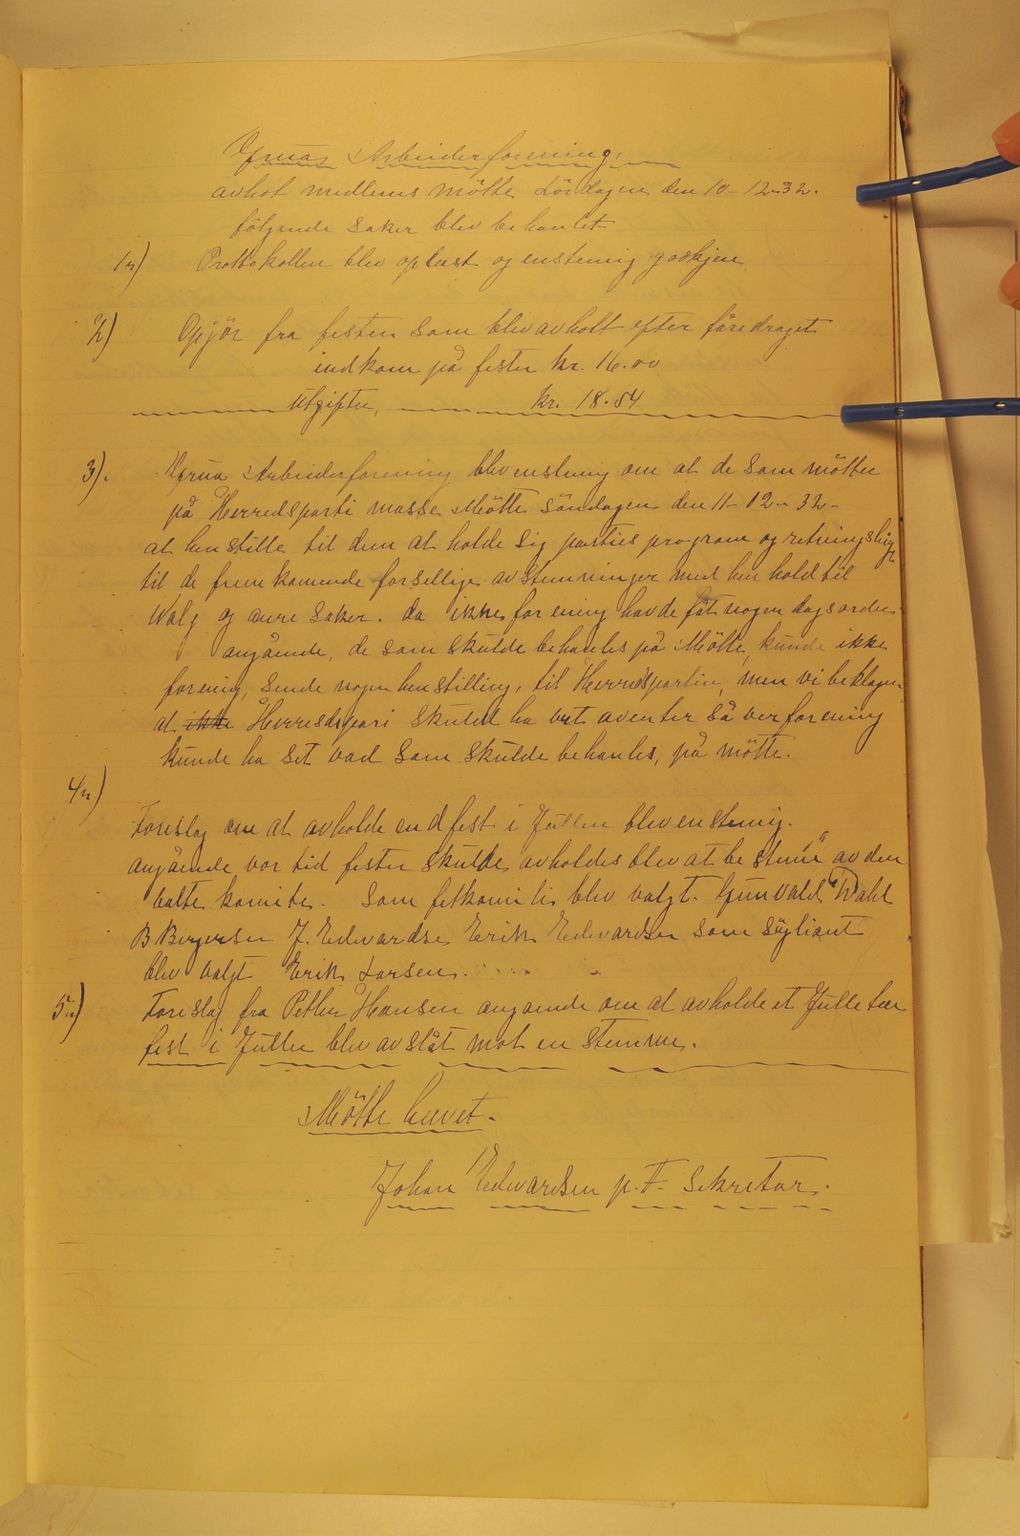 Arbeiderforening,
avhot medlems mötte Lördagen den 10-12-32.
fölgende saker blev behanlet
1n) Prottokollen blev oplest og enstemig godkjen
2) Opjör fra festen som blev avholt efter föredraget
indkom på festen kr. 16.00
Utgifter, kr. 18.54
3). Arbeiderforening blev enstemig om at de som mötter
på Herredsparti masse Mötte Söndagen den 11-12-32-
at henstille til dem at holde sig parties program og retningsling
til de fremkomende forsellige avstemninger med henhold til
Walg og anre saker. da ikke forening havde fåt nogen dagsorden
angående, de som skulde behanles på Mötte, kunde ikke
forening, sende nogen henstilling, til Herredspartiet, men vi beklager
at ikke Herresdspari skulde ha vert aventer så vor forening
kunde ha set vad som skulde behanles, på mötte.
4n)
Foreslag om at avholde end fest i Jullen blev enstemig.
angående vor tid festen skulde avholdes blev at bestem av den
valte komite. Som fetkomite blev valgt. Gunvald Dahl
B Bergersen J. Edvardse Erik Edvardsen som supliant
blev valgt Erik Larsen.
5n) Foreslag fra Petter Hansen angaende om at avholde et Julletre
fest i Jullen blev avslåt mot en stemme.
Mötte hevet.
Johan Edvardsen p.T. Sekretær.